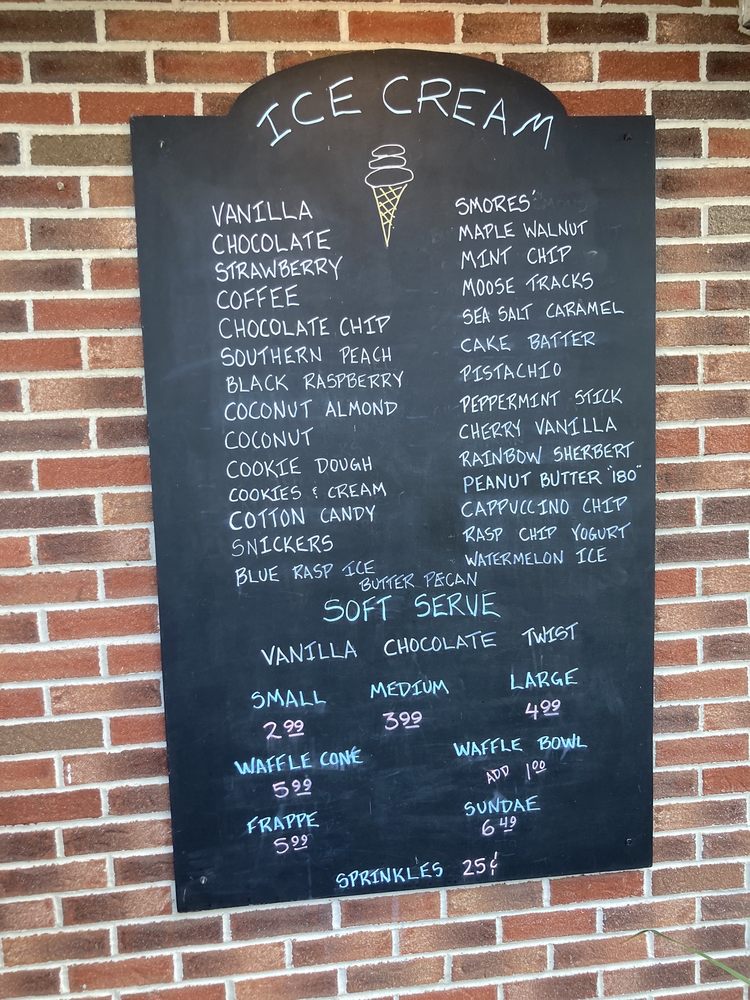 ICE CREAM
VANILLA
CHOCOLATE
STRAWBERRY
COFFEE
CHOCOLATE CHIP
SOUTHERN PEACH
BLACK RASPBERRY
COCONUT ALMOND
COCONUT
COOKIE DOUGH
COOKIES & CREAM
COTTON CANDY
SNICKERS
BLUE RASP ICE
SMORES'
MAPLE WALNUT
MINT CHIP
MOOSE TRACKS
SEA SALT CARAMEL
CAKE BATTER
PISTACHIO
PEPPERMINT STICK
CHERRY VANILLA
RAINBOW SHERBERT
PEANUT BUTTER "180"
CAPPUCCINO CHIP
RASP CHIP YOGURT
WATERMELON ICE
BUTTER PECAN
SOFT SERVE
VANILLA CHOCOLATE TWIST
SMALL MEDIUM LARGE
2.99 3.99 4.99
WAFFLE CONE WAFFLE BOWL
5.99 ADD 1.00
FRAPPE SUNDAE
5.99 6.49
SPRINKLES 25¢